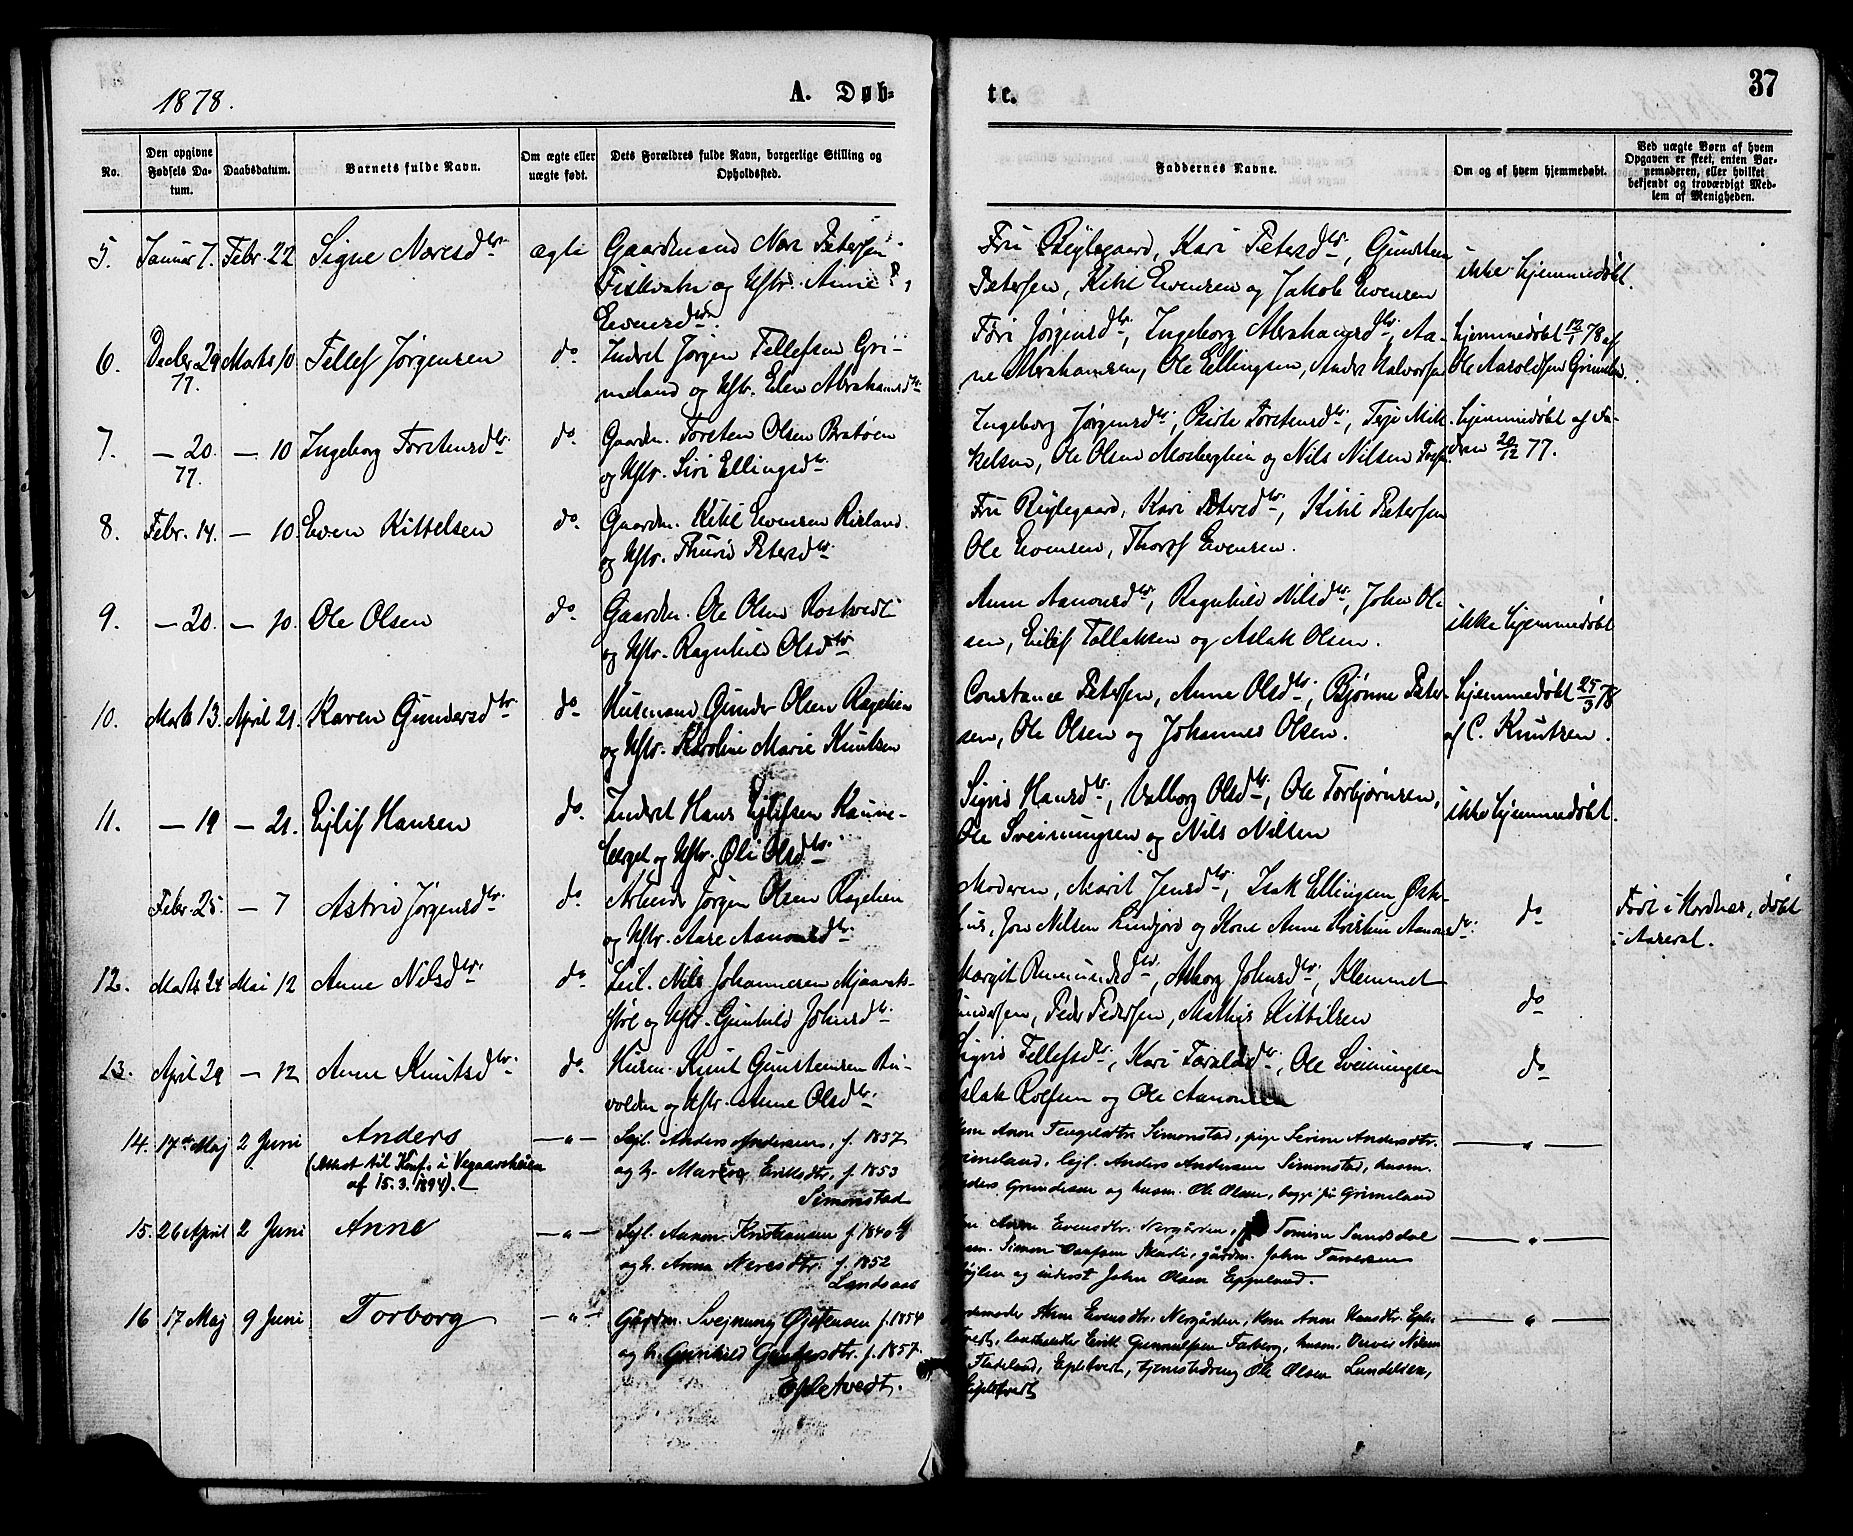 1878.
A. Døb-
te.
37
No.
Den opgivne Fødsels Datum.
Daabsdatum.
Barnets fulde Navn.
Om ægte eller uægte født.
Dets Forældres fulde Navn, borgerlige Stilling og Opholdssted.
Faddernes Navne.
Om og af hvem hjemmedøbt.
Ved uægte Børn af hvem Opgaven er skeet, enten Barnemoderen, eller hvilket bekjendt og troværdigt Medlem af Menigheden.
5. Januar 7. Febr. 22 Signe Naresdtr. ægte Gaardmand Nare Petersen
Fiskvatn og Hstr. Anne
Evensdtr.
Fru Rejlegaard, Kari Petersdtr., Gunsten
Petersen, Kitil Evensen og Jakob Evensen
ikke hjemmedøbt.
6. Decbr 29 77. Marts 10 Tellef Jørgensen do Inderst Jørgen Tellefsen Gri-
meland og Hstr. Elen Abrahamsdtr.
Turi Jørgensdtr., Ingeborg Abrahamsdtr., Aa-
ne Abrahamsen, Ole Ellingsen, Anders Halvorsen
hjemmedøbt 12/1 78 af
Ole Aaroldsen Grimelan.
7. — 20. 77. — 10 Ingeborg Torstensdtr. do Gaardm. Torsten Olsen Bratøen
og Hstr. Siri Ellingsdtr.
Ingeborg Jørgensdtr., Birte Torstensdtr., Terje Mik-
kelsen, Ole Olsen Mosberghein og Nils Nilsen
hjemmedøbt af Fa-
dren 20/12 77.
8. Febr. 14. — 10. Even Kittelsen do Gaardm. Kitil Evensen Risland
og Hstr. Thurid Petersdtr.
Fru Rejlegaard, Kari Petersdtr., Kitil Petersen
Ole Evensen, Thorsf Evensen.
9. — 20. — 10. Ole Olsen do Gaardm. Ole Olsen Rostvedt
og Hstr. Ragnhild Olsdtr.
Anne Aanonsdtr., Ragnhild Nilsdtr., John Ol-
sen, Eilef Tallaksen og Aslak Olsen.
ikke hjemmedøbt
10. Marts 13. April 21. Karen Gundersdtr. do Husmand Gunder Olsen Ragelien
og Hstr. Karoline Marie Knutsen
Constance Petersen, Anne Olsdtr., Bjønne Peter-
sen, Ole Olsen og Johannes Olsen.
hjemmedøbt 25/3 78
af C. Knutzen.
11. — 19 — 21. Ejlif Hansen do. Inderst Hans Ejlifsen Kaune-
berget og Hstr. Øli Olsdtr.
Sigrid Hansdtr., Valborg Olsdtr., Ole Torbjørnsen,
Ole Sveinungsen og Nils Nilsen
ikke hjemmedøbt.
Febr. 25. — 7 Astrid Jørgensdtr. do Arbeider Jørgen Olsen Ragelien
og Hstr. Aase Aanonsdtr.
Moderen, Marit Jensdtr., Isak Ellingsen Øst-
hus, Jon Nilsen Lindjord og Kone Anne Kristine Aanonsdtr.
do
Født i Mordnes, døbt
i Aaseral.
12. Marts 24 Mai 12 Anne Nilsdtr. do Leil. Nils Johannesen Mjaavats-
støl og Hstr. Gunhild Johnsdtr.
Margit Rummundsdtr., Asborg Johnsdtr., Klemmet
Peder Pedersen, Mathis Kittilsen
do
13. April 29 — 12 Anne Knutsdtr. do Husm. Knut Gunstensen Bu-
volden og Hstr. Anne Olsdtr.
Sigrid Tellefsdtr., Kari Taraldsdtr., Ole Sveinungsen
slak Rolfsen og Ole Aanonsen
do
14. 17de Maj 2 Juni Anders —"— Sejl. Anders Andersen, f. 1857
(Attest til Konf. i Vegaarsheien
af 15.3.1894).—
og h. Maria Eriksdtr., f. 1853
Simonstad
Anne Tengelsdtr. Simonstad, pige Serine Andersdtr.
rimeland, Sejl. Anders Andersen Simonstad, husm.
nders Gundersen og husm. Ole Olsen, begge fra Grimeland
—"—
15. 26 April 2 Juni Anne —"— Sejl. Aanon Kristiansen f. 1840
og h. Anne Naresdtr. f. 1852
Landsaas
Anne Evensdtr. Nergården, Tomine Sundsdal
Simon Olafsen Skarli, gårdm. John Tarersen
øjlen og inderst John Olsen Eppeland.
—"—
16 17 Maj 9 Juni Torborg —"— Gårdm. Svejnung Øjstensen f. 1854
og h. Gunhild Gundersdtr. f. 1857
Epletvedt.
ordemoder Anne Evensdtr. Nergården, kone Anne Hansdtr. Eple-
tvedt, Erik Gunnulfsen Farberg, husm. Nilsen
Fladeland, Epletvedt, tjenestedreng Ole Olsen Lundelien,
Epletvedt
—"—